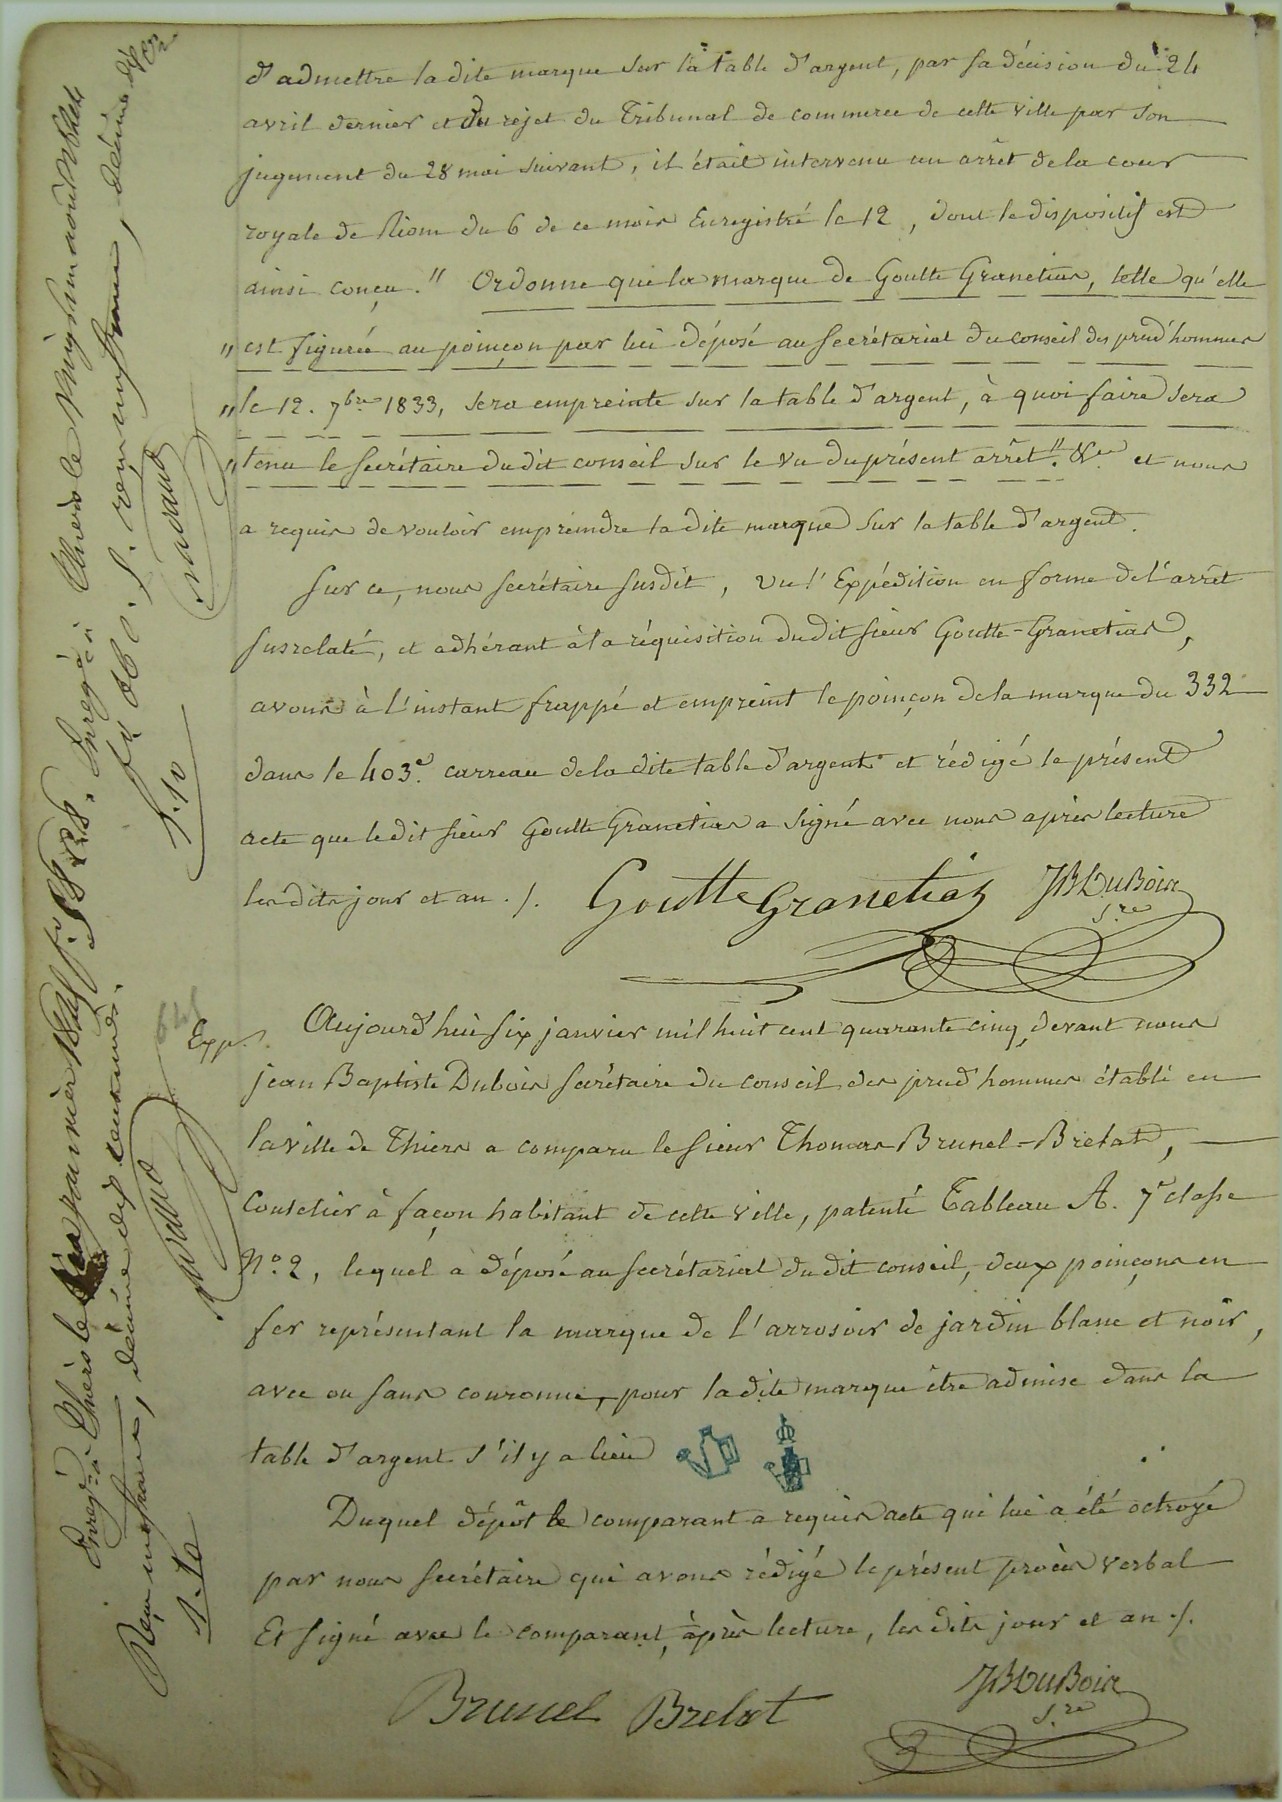 d'admettre la dite marque sur la table d'argent, par sa décision du 24
avril dernier et du rejet du Tribunal de commerce de cette ville par son
jugement du 28 mai suivant, il était intervenu un arrêt de la cour
royale de Riom du 6 de ce mois Enregistré le 12, dont le dispositif est
ainsi conçu. " Ordonne que la marque de Goutte Granetias, telle qu'elle
" est figurée au poinçon par lui déposé au secrétariat du conseil des prud'hommes
" le 12. 7bre 1833, sera empreinte sur la table d'argent, à quoi faire sera
" tenu le secrétaire dudit conseil sur le vu du présent arrêt." &a et nous
a requis de vouloir empreindre la dite marque sur la table d'argent.
Sur ce, nous secrétaire susdit, vu l'Expédition en forme de l'arrêt
susrelaté, et adhérant à la réquisition dudit sieur Goutte-Granetias,
avons à l'instant frappé et empreint le poinçon de la marque du 332
dans le 403e. carreau de la dite table d'argent et rédigé le présent
acte que le dit sieur Goutte Granetias a signé avec nous après lecture
les dits jour et an ./.
Goutte Granetias JB Dubois
s.re
Exp.
Aujourd'hui six janvier mil huit cent quarante cinq, devant nous
jean Baptiste Dubois secrétaire du conseil des prud'hommes établi en
la ville de Thiers a comparu le sieur Thomas Brunel-Brelat,
Coutelier à façon habitant de cette ville, patenté Tableau A. 7e classe
No. 2, lequel a déposé au secrétariat du dit conseil, deux poinçons en
fer représentant la marque de l'arrosoir de jardin blanc et noir,
avec ou sans couronne, pour la dite marque être admise dans la
table d'argent s'il y a lieu
Duquel dépôt le comparant a requis acte qui lui a été octroyé
par nous secrétaire qui avons rédigé le présent procès verbal
Et signé avec le comparant, après lecture, les dits jour et an ./.
Brunel Brelat
JB Dubois
s.re
Enregé à Thiers le
1.10
Enregé à Thiers le janvier
Reçu un franc, décime dix centimes.
1.10